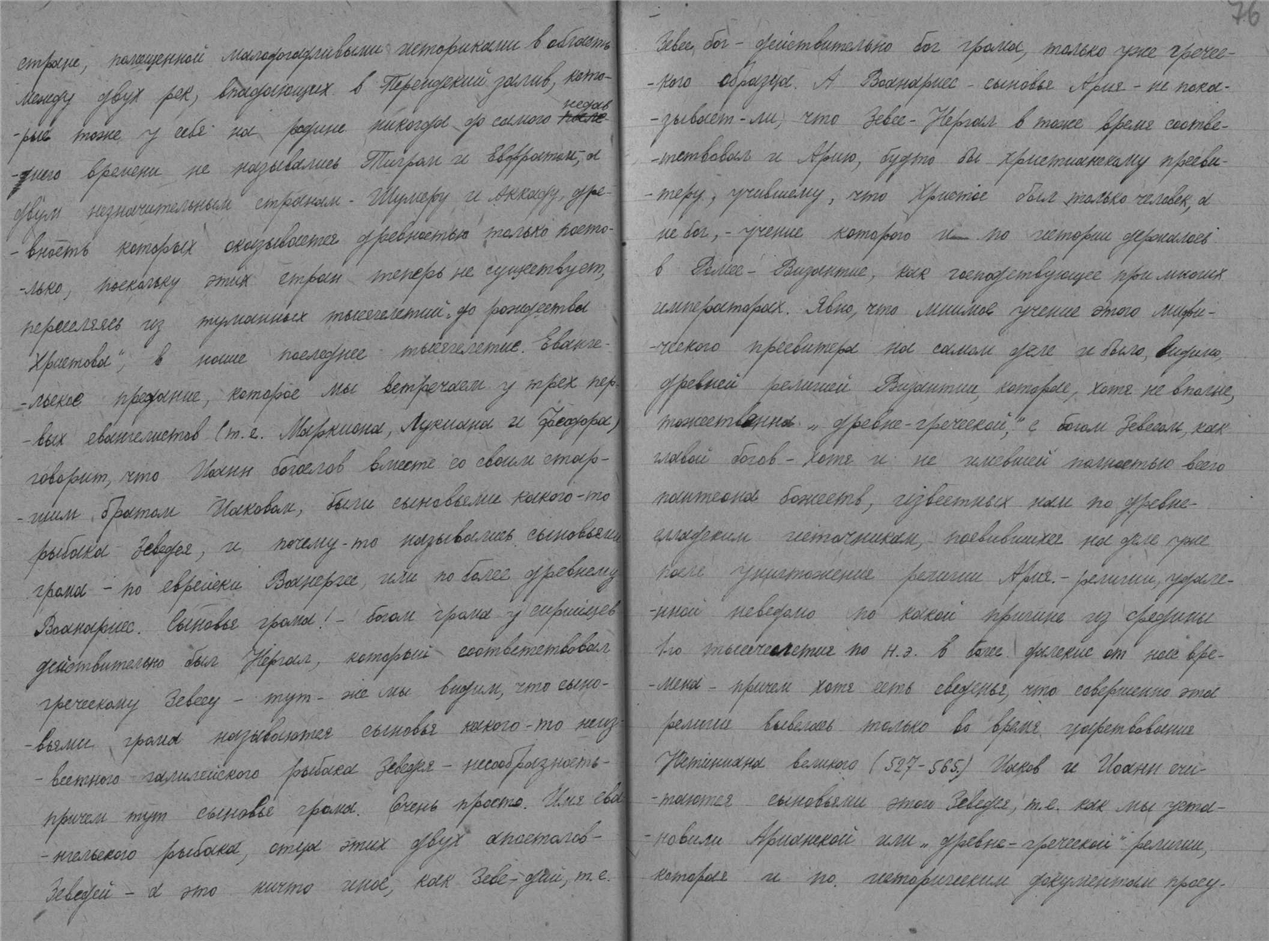 стране, помещенной малодогадливыми историками в область
между двух рек, впадающих в Персидский залив, кото-
-рые тоже у себя на родине никогда до самого недав
-него времени не назывались Тигром и Евфратом, а
двум незначительным странам - Шумеру и Аккаду, дре-
-вность которых оказывается древностью только посто-
-лько, поскольку этих стран теперь не существует,
переселяясь из туманных тысячелетий „до рождества
Христова", в наше последнее тысячелетие. Еванге-
-льское предание, которое мы встречаем у трех пер-
-вых евангелистов (т.е. Маркиона, Лукиана и Феодора)
говорит, что Иоанн богослов вместе со своим стар-
-шим братом Иаковом, были сыновьями какого-то
рыбака Зеведея, и почему-то назывались сыновьями
грома - по еврейски Воанергес, или по более древнему
Воанаргес. Сыновье грома! - богом грома у сирийцев
действительно был Нергал, который соответствовал
греческому Зевесу - тут-же мы видим, что сыно-
-вьями грома называются сыновья какого-то неиз-
-вестного галилейского рыбака Зеведея - несообразность -
причем тут сыновье грома. Очень просто. Имя ева
-нгельского рыбака, отца этих двух апостолов -
Зеведей - а это ничто иное, как Зеве-дей, т.е.
76
Зевес бог - действительно бог грома, только уже гречес-
-кого образца. А Воанаргес - сыновья Ария - не пока-
-зывает-ли, что Зевес-Нергал в тоже время соотве-
-тствовал и Арию, будто бы христианскому пресви-
-теру, учившему, что Христос был только человек, а
не бог, - учение которого и по истории держалось
в Ромее - Византие, как господствующее при многих
императорах. Явно, что мнимое учение этого мифи-
-ческого пресвитера на самом деле и было, видимо,
древней религией Византии, которое, хотя не вполне,
тожественна „древне-греческой", с богом Зевесом, как
главой богов - хотя и не имевшей полностью всего
пантеона божеств, известных нам по древне-
элладским источникам, появившихся на деле уже
после уничтожения религии Ария. - религии, удале-
-нной неведомо по какой причине из средины
1-го тысячелетия по н.э. в более далекие от нас вре-
-мена - причем хотя есть сведенья, что совершенно эта
религия вывелась только во время царствования
Юстиниана великого (527-565) Иаков и Иоанн счи-
-таются сыновьями этого Зеведея, т.е. как мы уста-
-новили Арианской или „древне-греческой" религии,
которая и по историческим документам просу-